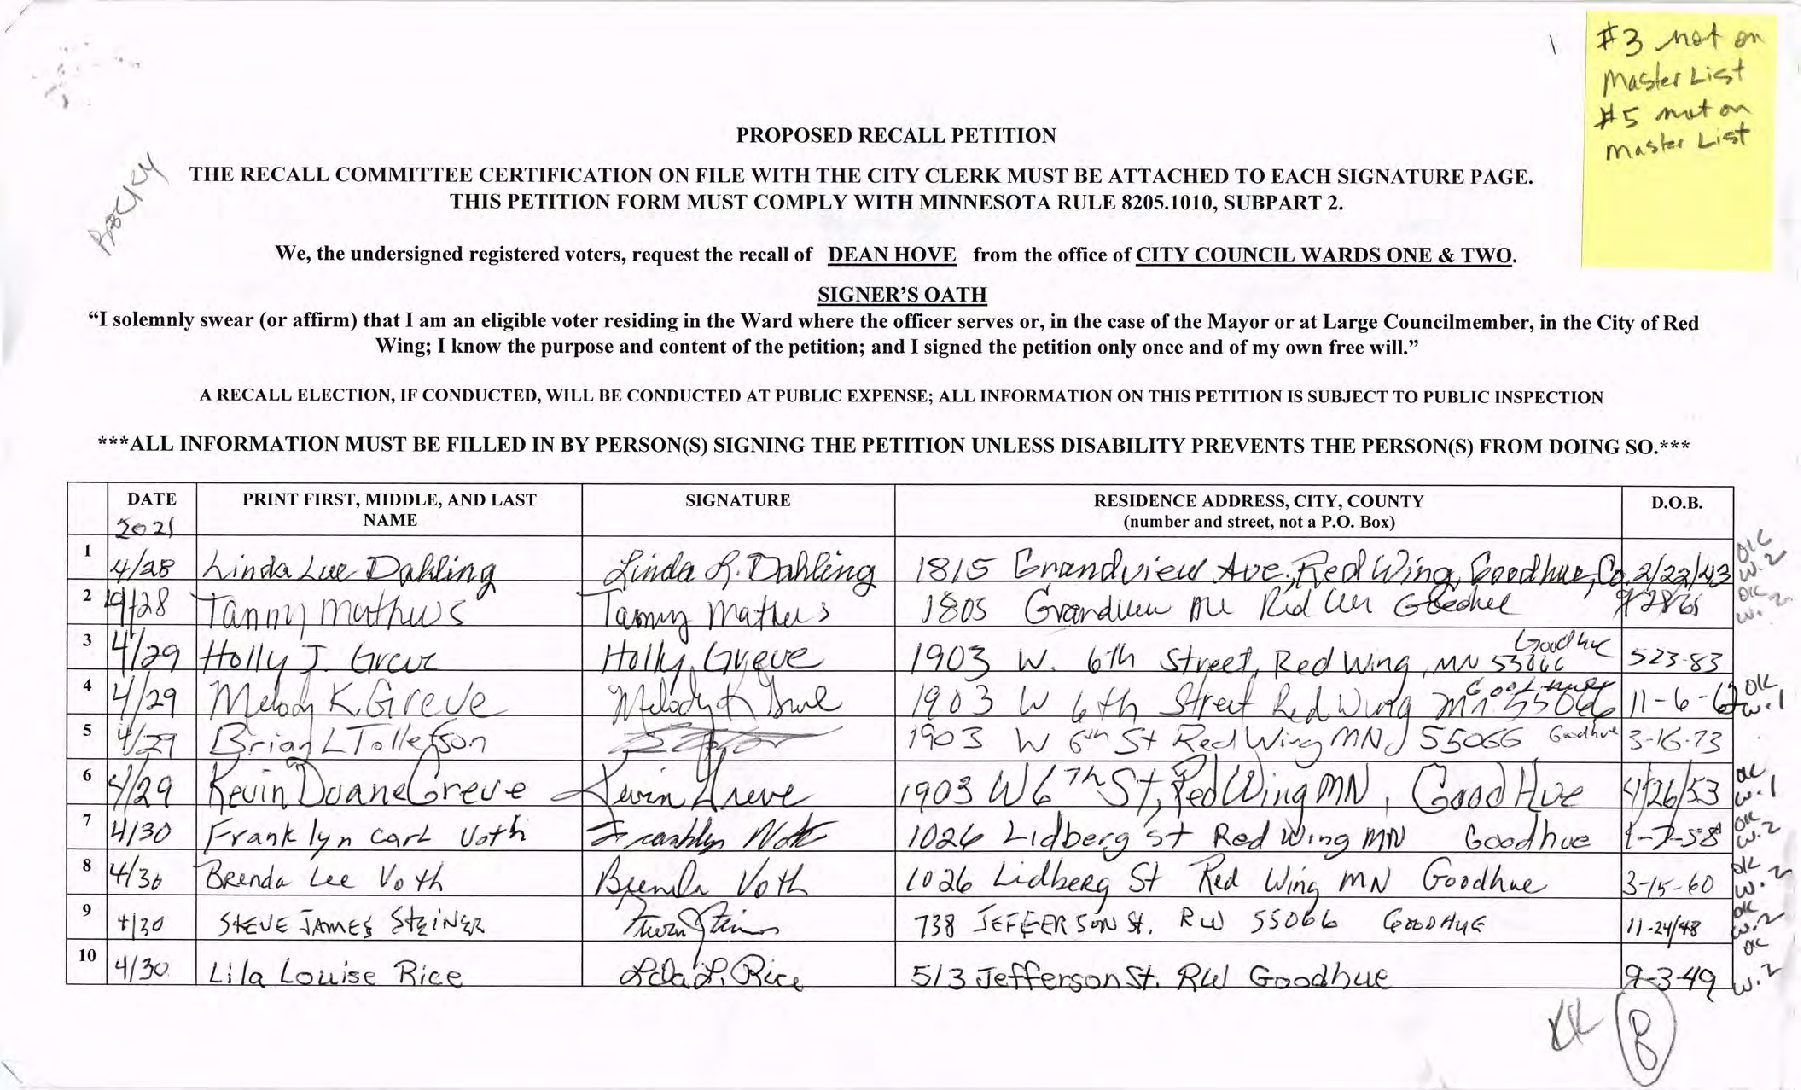 #3 not on
Master List
#5 not on
Master List
PROPOSED RECALL PETITION
THE RECALL COMMITTEE CERTIFICATION ON FILE WITH THE CITY CLERK MUST BE ATTACHED TO EACH SIGNATURE PAGE.
THIS PETITION FORM MUST COMPLY WITH MINNESOTA RULE 8205.1010, SUBPART 2.
We, the undersigned registered voters, request the recall of DEAN HOVE from the office of CITY COUNCIL WARDS ONE & TWO.
SIGNER'S OATH
“I solemnly swear (or affirm) that I am an eligible voter residing in the Ward where the officer serves or, in the case of the Mayor or at Large Councilmember, in the City of Red
Wing; I know the purpose and content of the petition; and I signed the petition only once and of my own free will.”
A RECALL ELECTION, IF CONDUCTED, WILL BE CONDUCTED AT PUBLIC EXPENSE; ALL INFORMATION ON THIS PETITION IS SUBJECT TO PUBLIC INSPECTION
***ALL INFORMATION MUST BE FILLED IN BY PERSON(S) SIGNING THE PETITION UNLESS DISABILITY PREVENTS THE PERSON(S) FROM DOING SO.***
DATE PRINT FIRST, MIDDLE, AND LAST SIGNATURE RESIDENCE ADDRESS, CITY, COUNTY D.O.B.
2021 NAME (number and street, not a P.O. Box)
1 4/28 Linda Lee Dahling Linda L. Dahling 1815 Grandview Ave, Red Wing, Goodhue, Co. 2/22/43 OK W.2
2 4/28 Tammy Mathews Tammy Mathews 1805 Grandview Goodhue OK W.2
3 4/29 Holly J. Greve Holly Greve 1903 W. 6th Street, Red Wing, MN Goodhue 5-23-83
4 4/29 Melody K. Greve Melody K Greve 1903 W 6th Street Red Wing mn 55066 Goodhue 11-6-62 OK W.1
5 4/29 Brian L Tollefson 1903 W 6th St Red Wing MN, 55066 Goodhue 3-16-73
6 4/29 Kevin Duane Greve Kevin Greve 1903 W 6TH St, Red Wing MN, Good Hue 4/26/53 OK W.1
7 4/30 Franklyn Carl Voth Franklyn Voth 1026 Lidberg St Red Wing MN Goodhue 1-7-58 OK W.2
8 4/30 Brenda Lee Voth Brenda Voth 1026 Lidberg St Red Wing MN Goodhue 3-15-60 OK W.2
9 4/30 STEVE JAMES STEINER 738 JEFFERSON St. RW 55066 GOODHUE 11-24/48 OK W.2
10 4/30 Lila Louise Rice Lila L. Rice 513 Jefferson St. RW Goodhue 9-3-49 OK W.2
8